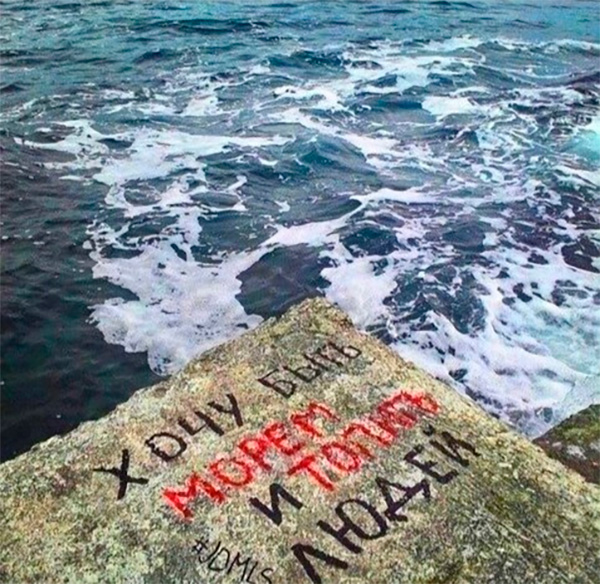 ХОЧУ БЫТЬ
МОРЕМ
И ТОПИТЬ
ЛЮДЕЙ
#JDMLS